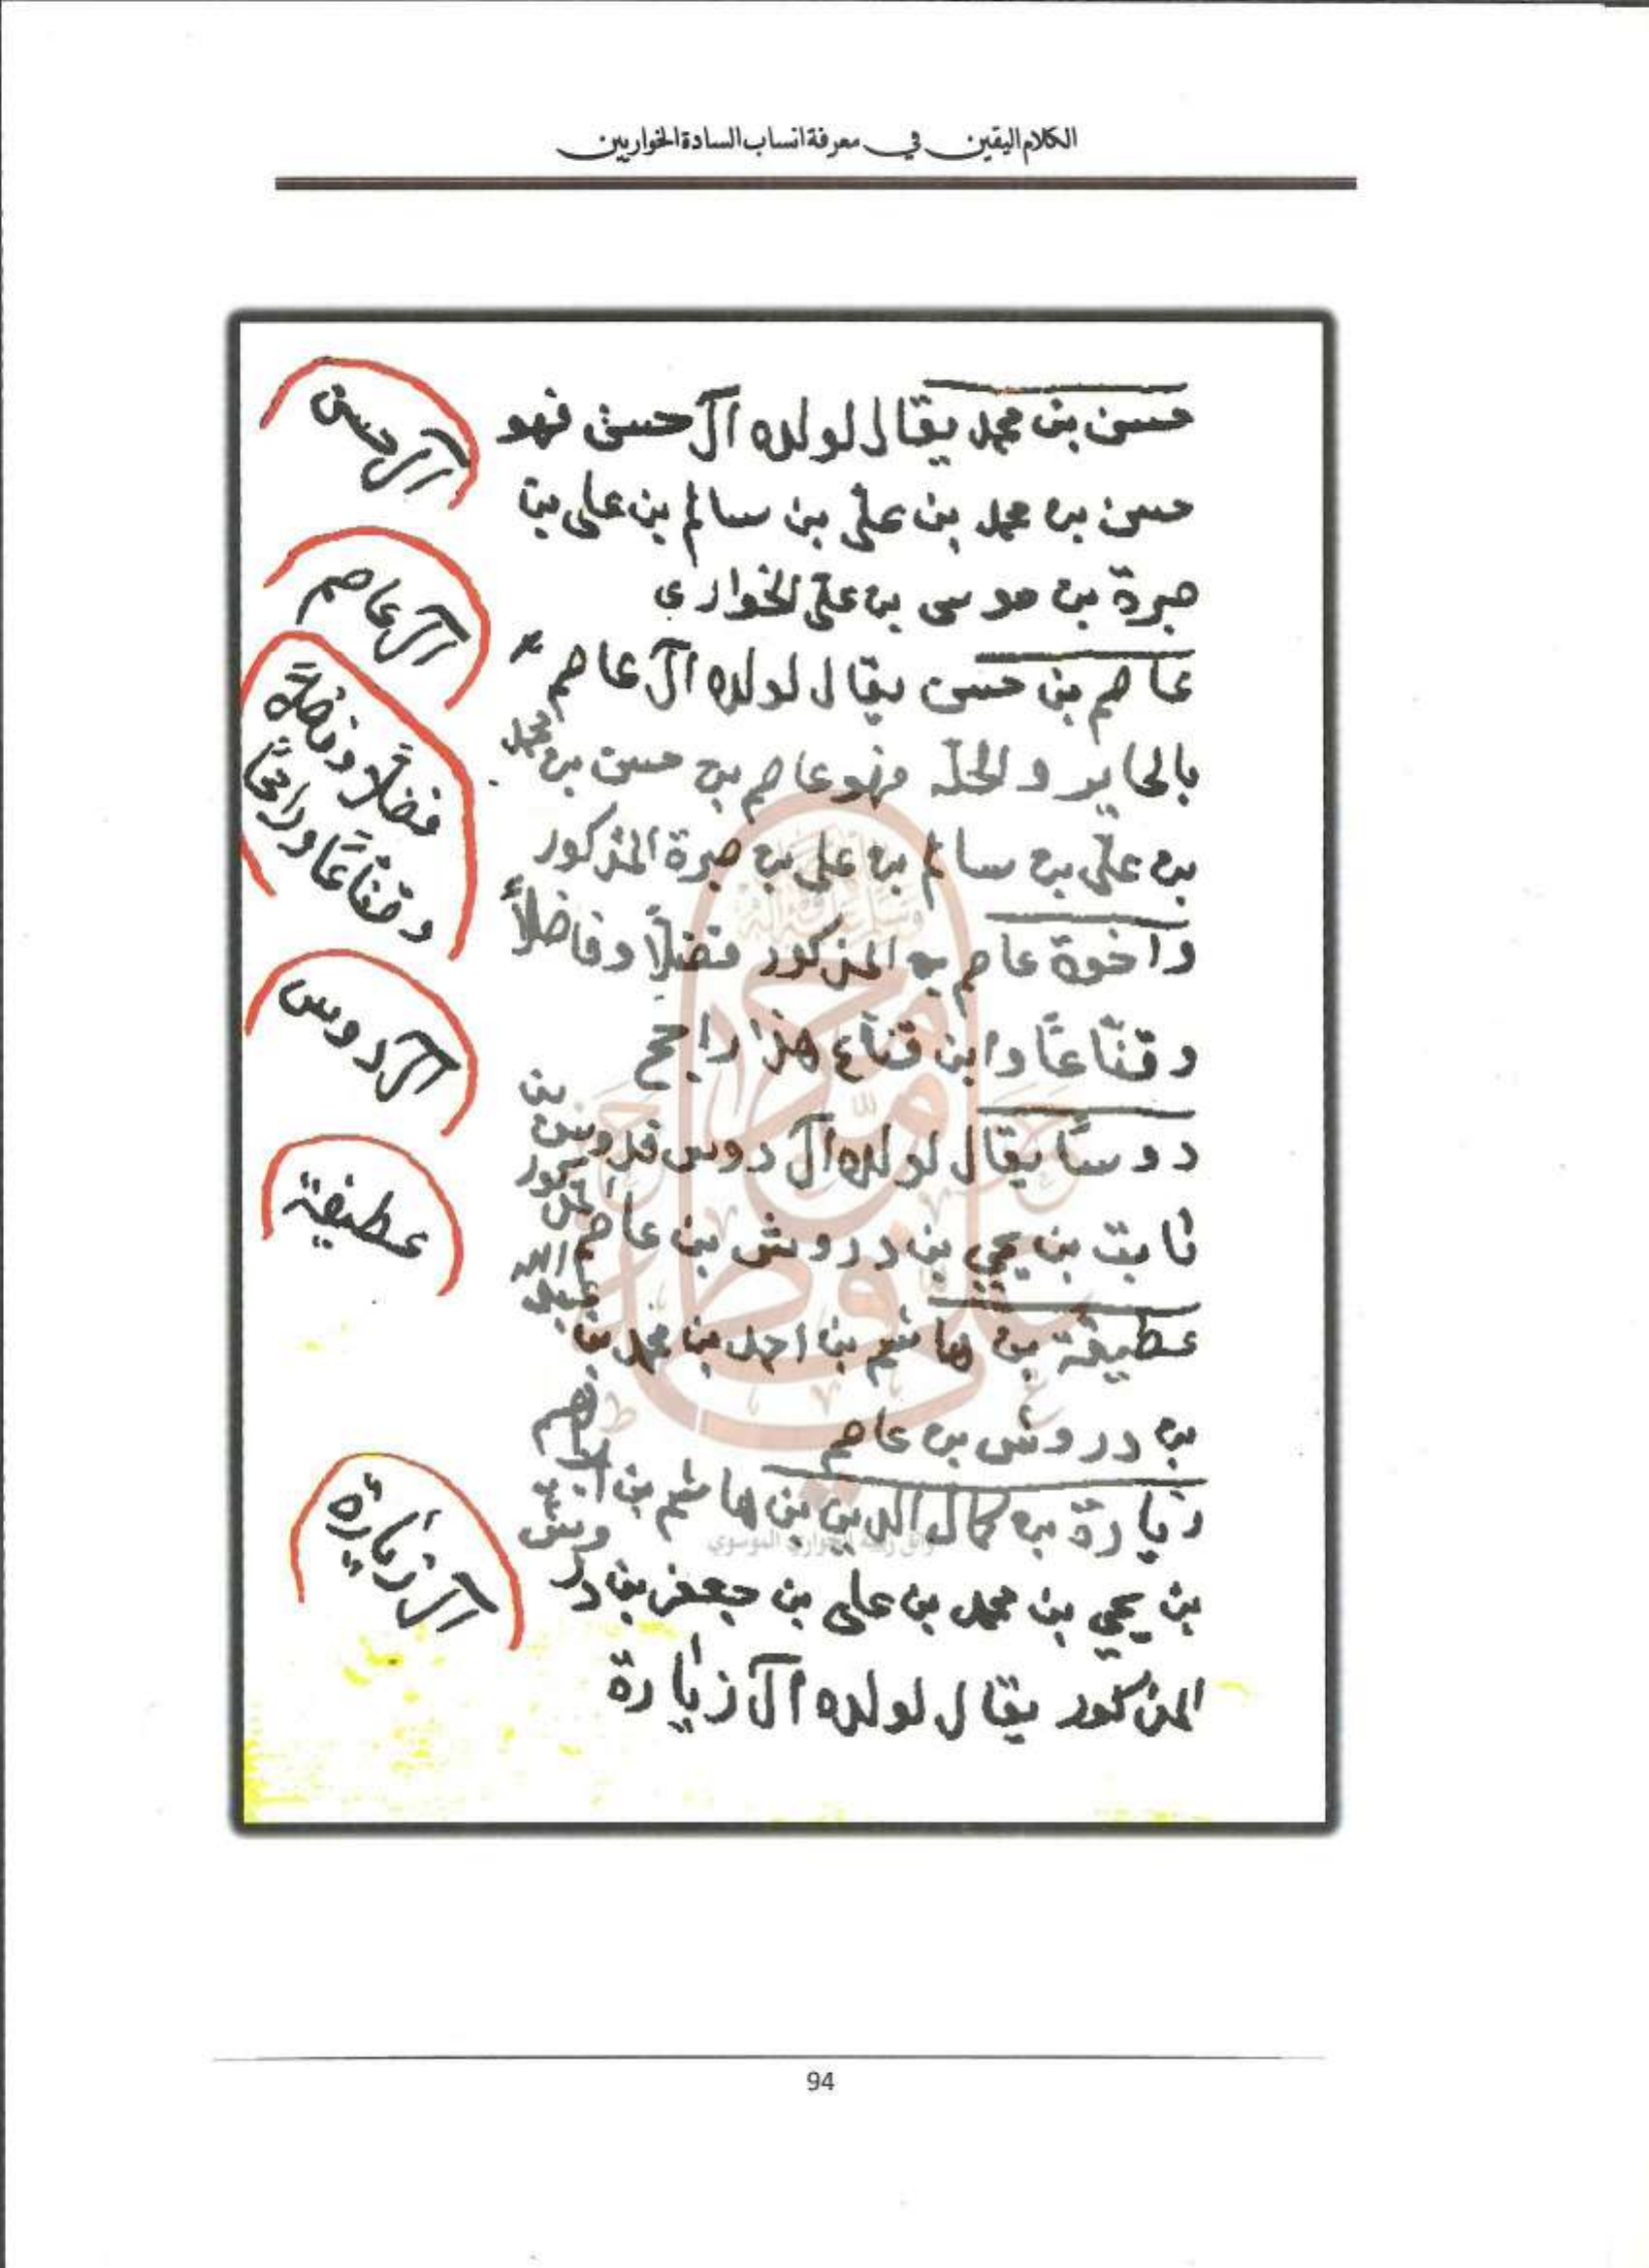 الكلام اليقين في معرفة انساب السادة الخواريين
حسن بن محمد يقال لولده آل حسن فهو
حسن بن محمد بن علي بن سالم بن علي بن
صبرة بن موسى بن علي الخواري
عاصم بن حسن يقال لولده آل عاصم
بالحاير والحلّه فهو عاصم بن حسن بن محمد
بن علي بن سالم بن علي بن صبرة المذكور
واخوة عاصم المذكور فضلًا وفاضلًا
وقنّاعًا وابن قنّاع هذا راجح
دوسًا يقال لولده آل دوس فدوس بن
ثابت بن يحيي بن دروش بن عاصم المذكور
عطيفة بن هاشم بن احمد بن محمد بن
بن دروش بن عاصم
زيارة بن كمال الدين بن هاشم بن ابراهيم
بن يحيي بن محمد بن علي بن جعفر بن دروش
المذكور يقال لولده آل زيارة
آل حسن
آل عاصم
فضلًا
وقنّاعًا وراجحًا
آل دوس
عطيفة
آل زيارة
94